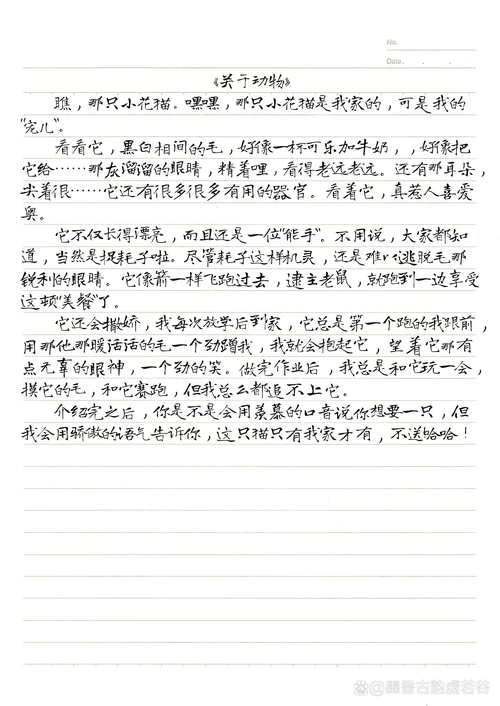 No.
Date. . .
《关于动物》
瞧，那只小花猫。嘿嘿，那只小花猫是我家的，可是我的
"宠儿"。
看看它，黑白相间的毛，好像一杯可乐加牛奶，，好像把
它给……那灰溜溜的眼睛，精着哩，看得老远老远。还有那耳朵，
尖着很……它还有很多很多有用的器官。看着它，真惹人喜爱
奥。
它不仅长得漂亮，而且还是一位"能手"。不用说，大家都知
道，当然是捉耗子啦。尽管耗子这样机灵，还是难以逃脱毛那
锐利的眼睛。它像箭一样飞跑过去，逮主老鼠，就跑到一边享受
这顿"美餐"了。
它还会撒娇，我每次放学后到家，它总是第一个跑的我跟前，
用那他那暖活活的毛一个劲蹭我，我就会抱起它，望着它那有
点无辜的眼神，一个劲的笑。做完作业后，我总是和它玩一会，
摸它的毛，和它赛跑，但我总么都追不上它。
介绍完之后，你是不是会用羡慕的口音说你想要一只，但
我会用骄傲的语气告诉你，这只猫只有我家才有，不送哈哈！
古韵虚若谷